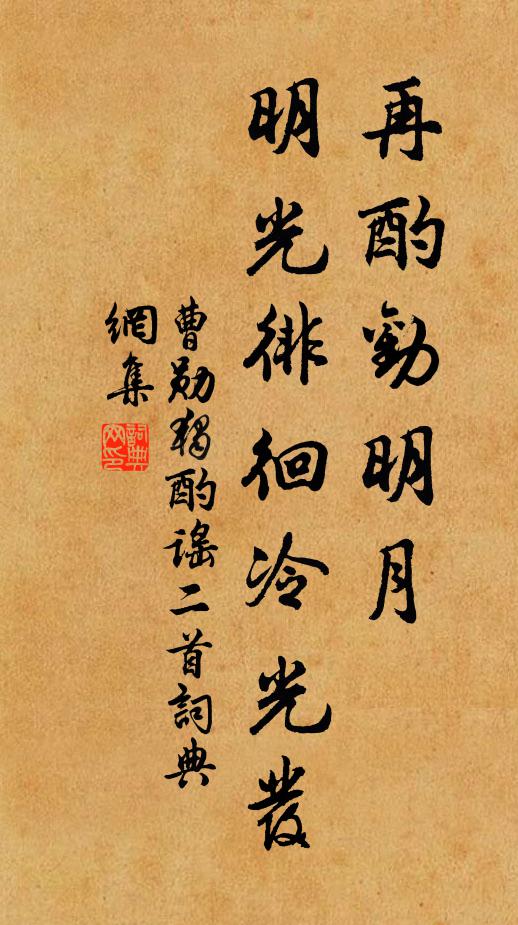 再酌勸明月
明光徘徊冷光發
曹勛獨酌謠二首詞典
網集
詞典
網印